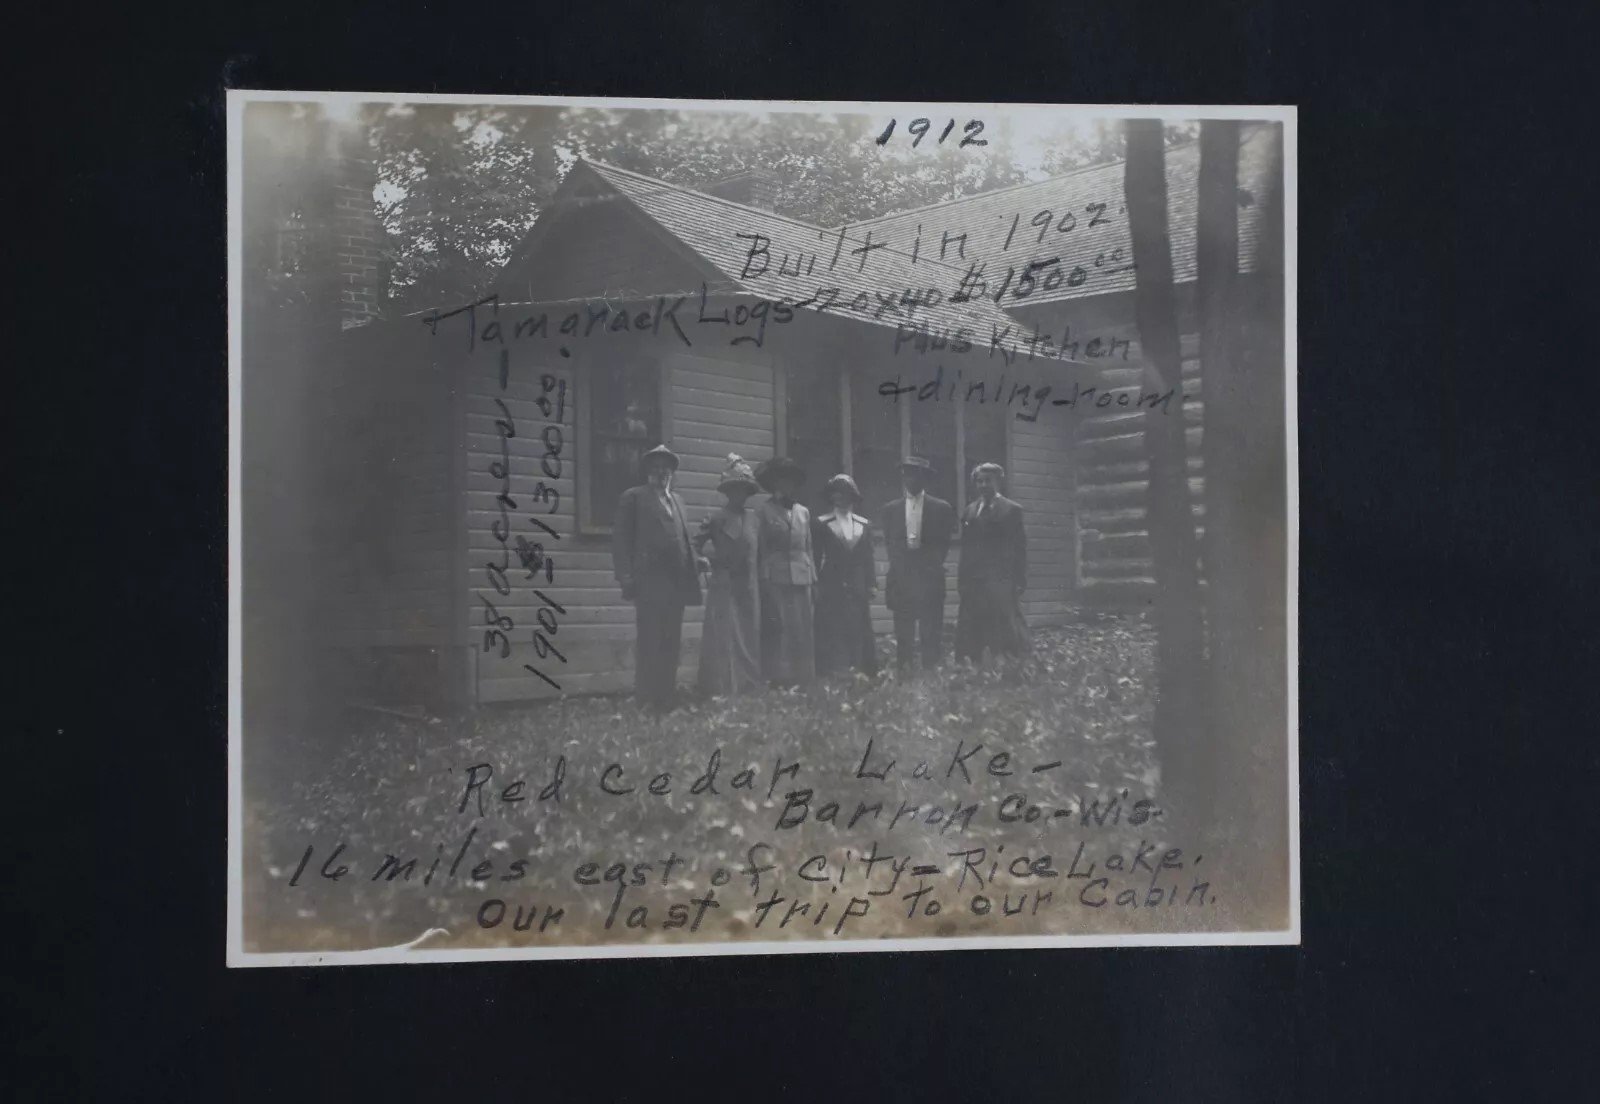 1912
Built in 1902.
Tamarack Logs 20x40 $1500.00
Plus Kitchen
& dining-room.
38 acres —
1901 - $1300.00.
Red Cedar Lake -
Barron Co.-Wis.
16 miles east of city=Rice Lake.
Our last trip to our Cabin.